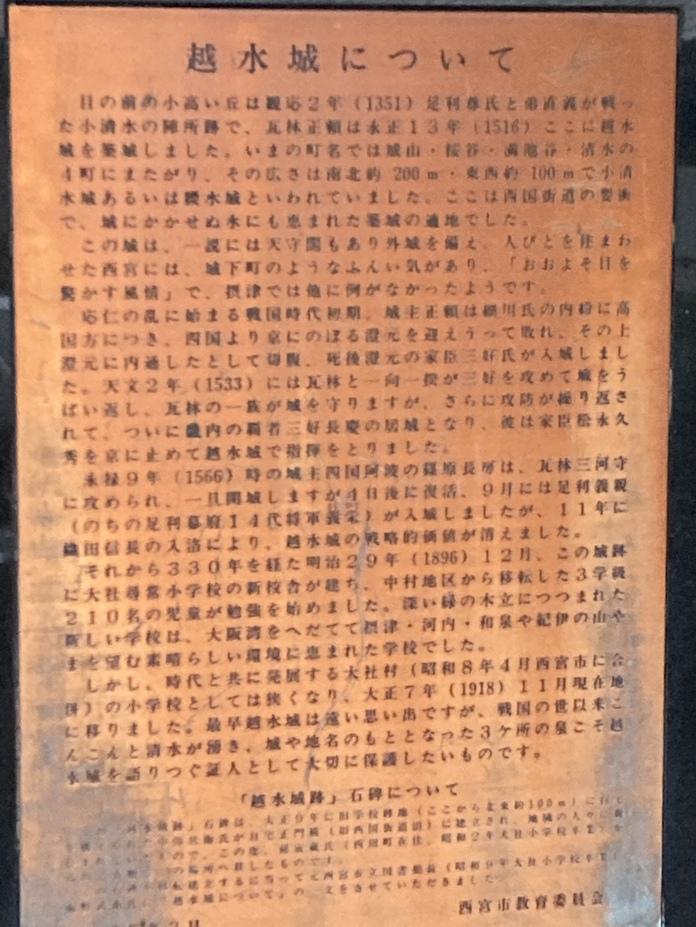 越水城について
目の前の小高い丘は観応2年（1351）足利尊氏と弟直義が戦っ
た小清水の陣所跡で、瓦林正頼は永正13年（1516）ここに越水
城を築城しました。いまの町名では城山・桜谷・満池谷・清水の
4町にまたがり、その広さは南北約200m・東西約100mで小清
水城あるいは腰水城といわれていました。ここは西国街道の要衝
で、城にかかせぬ水にも恵まれた築城の適地でした。
この城は、一説には天守閣もあり外城を備え、人びとを住まわ
せた西宮には、城下町のようなふんい気があり、「おおよそ目を
驚かす風情」で、摂津では他に例がなかったようです。
応仁の乱に始まる戦国時代初期、城主正頼は細川氏の内紛に高
国方につき、四国より京にのぼる澄元を迎えうって敗れ、その上
澄元に内通したとして切腹、死後澄元の家臣三好氏が入城しまし
た。天文2年（1533）には瓦林と一向一揆が三好を攻めて城をう
ばい返し、瓦林の一族が城を守りますが、さらに攻防が繰り返さ
れて、ついに畿内の覇者三好長慶の居城となり、彼は家臣松永久
秀を京に止めて越水城で指揮をとりました。
永禄9年（1566）時の城主四国阿波の篠原長房は、瓦林三河守
に攻められ、一旦開城しますが4日後に復活、9月には足利義親
（のちの足利幕府14代将軍義栄）が入城しましたが、11年に
織田信長の入洛により、越水城の戦略的価値が消えました。
それから330年を経た明治29年（1896）12月、この城跡
に大社尋常小学校の新校舎が建ち、中村地区から移転した3学級
210名の児童が勉強を始めました。深い緑の木立につつまれた
新しい学校は、大阪湾をへだてて摂津・河内・和泉や紀伊の山や
まを望む素晴らしい環境に恵まれた学校でした。
しかし、時代と共に発展する大社村（昭和8年4月西宮市に合
併）の小学校としては狭くなり、大正7年（1918）11月現在地
に移りました。最早越水城は遠い思い出ですが、戦国の世以来こ
んこんと清水が湧き、城や地名のもととなった3ケ所の泉こそ越
水城を語りつぐ証人として大切に保護したいものです。
「越水城跡」石碑について
石碑は、大正9年に旧学校跡地（ここから北東約100m）に
に建立され、地域の人々に
もので、この度、
の場所へ移したものです。
建立するに当って元西宮市立図書館長（昭和9年大社小学校卒業）
「越水城について」の一文をさせていただきました。
西宮市教育委員会